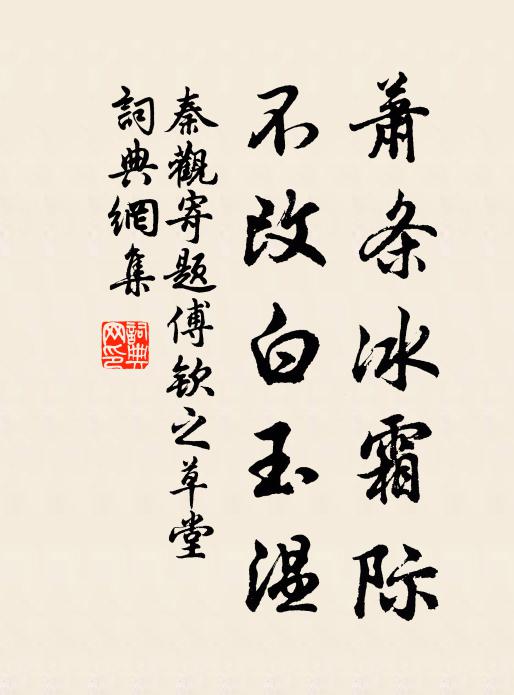 蕭条冰霜际
不改白玉温
秦觀寄题傅欽之草堂
詞典網集
詞典网印